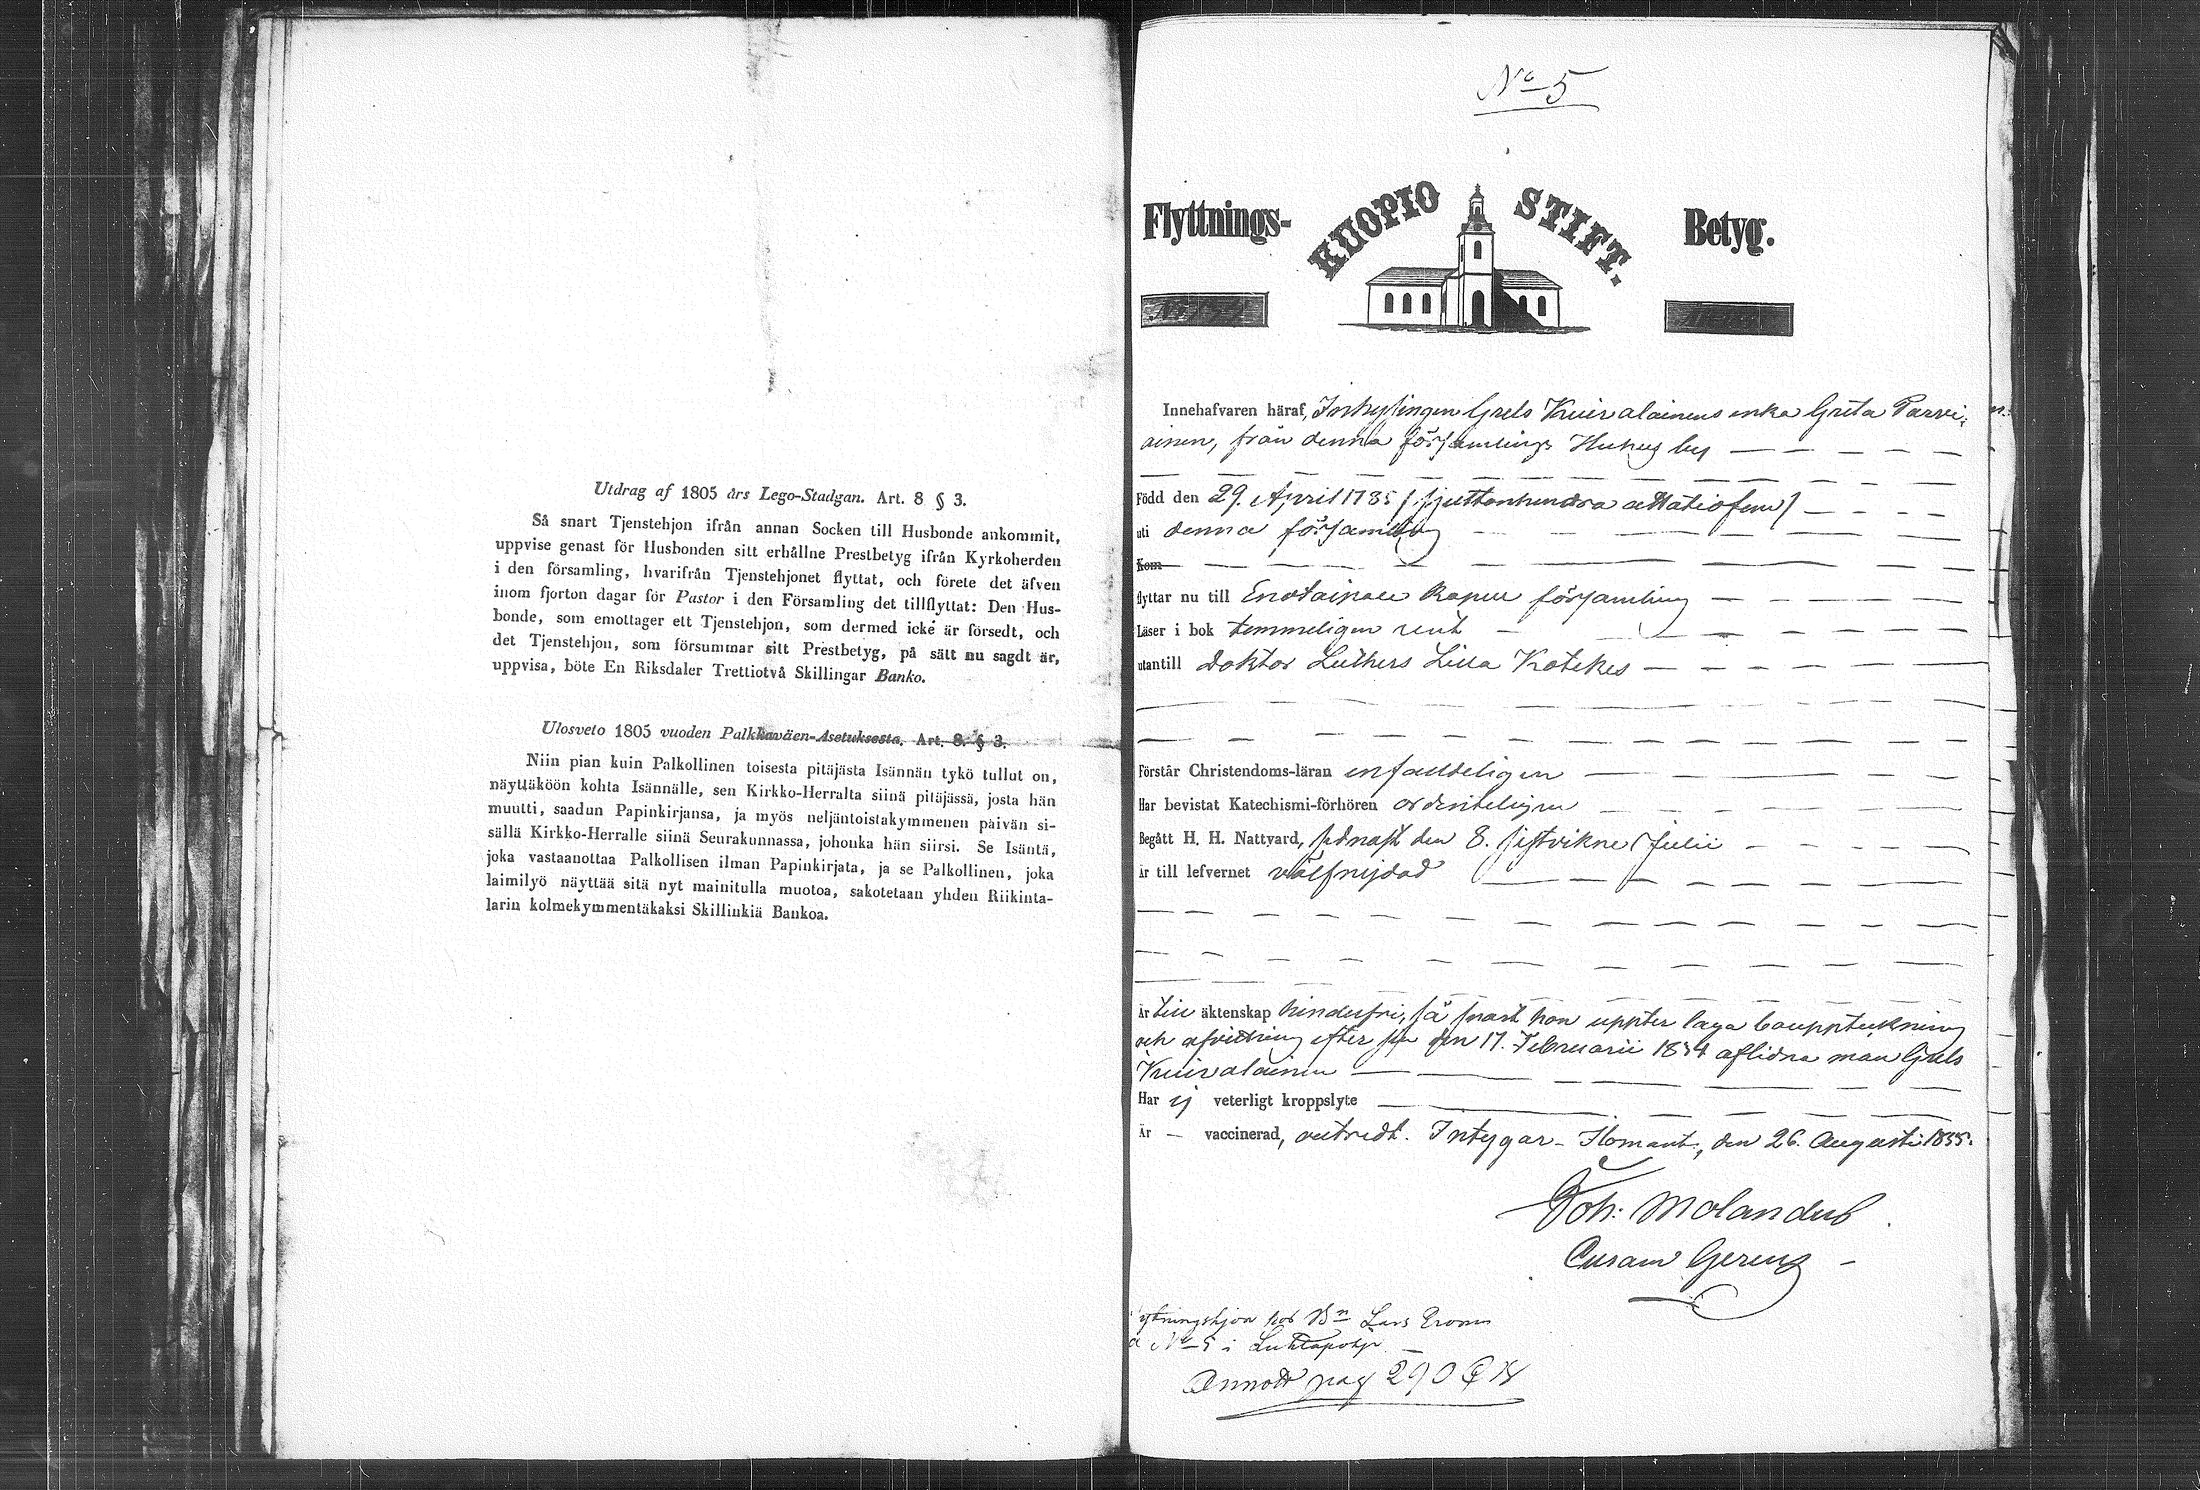 Utdrag af 1805 års Lego-Stadgan. Art. 8 § 3.
Så snart Tjenstehjon ifrån annan Socken till Husbonde ankommit,
uppvise genast för Husbonden sitt erhållne Prestbetyg ifrån Kyrkoherden
i den församling, hvarifrån Tjenstehjonet flyttat, och förete det äfven
inom fjorton dagar för Pastor i den Församling det tillflyttat: Den Hus-
bonde, som emottager ett Tjenstehjon, som dermed icke är försedt, och
det Tjenstehjon, som försummar sitt Prestbetyg, på sätt nu sagdt är,
uppvisa, böte En Riksdaler Trettiotvå Skillingar Banko.
Ulosveto 1805 vuoden Palkkaväen-Asetuksesta. Art. 8. § 3.
Niin pian kuin Palkollinen toisesta pitäjästä Isännän tykö tullut on,
näyttäköön kohta Isännälle, sen Kirkko-Herralta siinä pitäjässä, josta hän
muutti, saadun Papinkirjansa, ja myös neljäntoistakymmenen päivän si-
sällä Kirkko-Herralle siinä Seurakunnassa, johonka hän siirsi. Se Isäntä,
joka vastaanottaa Palkollisen ilman Papinkirjata, ja se Palkollinen, joka
laimilyö näyttää sitä nyt mainitulla muotoa, sakotetaan yhden Riikinta-
larin kolmekymmentäkaksi Skillinkiä Bankoa.
No 5
Flyttnings- KUOPIO STIFT. Betyg.
Innehafvaren häraf, Inhysingen Grels Kuivalainens enka Greta Parvi-
ainen, från denna församlings Huhus by
Född den 29. April 1785 (sjuttonhundra åttatiofem)
uti denna församling
Kom
flyttar nu till Enotaipale Kapell församling
Läser i bok temmeligen rent
utantill Doktor Luthers Lilla Kateches
Förstår Christendoms-läran enfaldeligen
Har bevistat Katechismi-förhören ordenteligen
Begått H. H. Nattvard, sednast den 8. sistvikne Julii
Är till lefvernet välfrejdad
Är till äktenskap hinderfri, så snart hon uppter laga bouppteckning
och afvittring efter sin den 17. Februarii 1834 aflidna man Grels
Kuivalainen
Har ej veterligt kroppslyte
Är vaccinerad, utredt. Intygar Ilomants, den 26. Augusti 1835.
Joh: Molander
Curam Gerens
hos Bn Lars
No 5 i Luhtapohja
Annoter pag 290